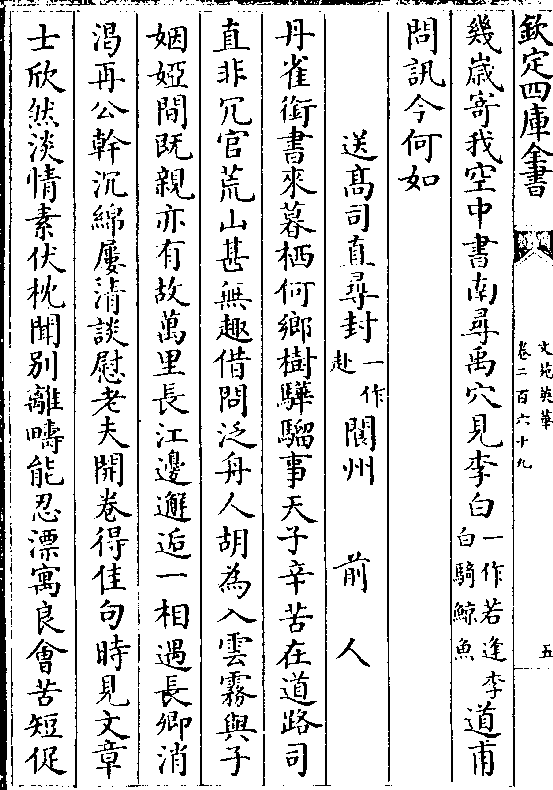 欽定四庫全書
文苑英華
卷二百六十九
五
幾歲寄我空中書南尋禹穴見李白一作若逢李白騎鯨魚道甫
問訊今何如
送髙司直尋封一作赴閬州　前人
丹雀銜書來暮栖何鄉樹驊騮事天子辛苦在道路司
直非冗官荒山甚無趣借問泛舟人胡為入雲霧與子
姻婭間既親亦有故萬里長江邊邂逅一相遇長卿消
渴再公幹沉綿屢清談慰老夫開卷得佳句時見文章
士欣然淡情素伏枕聞别離疇能忍漂寓良㑹苦短促